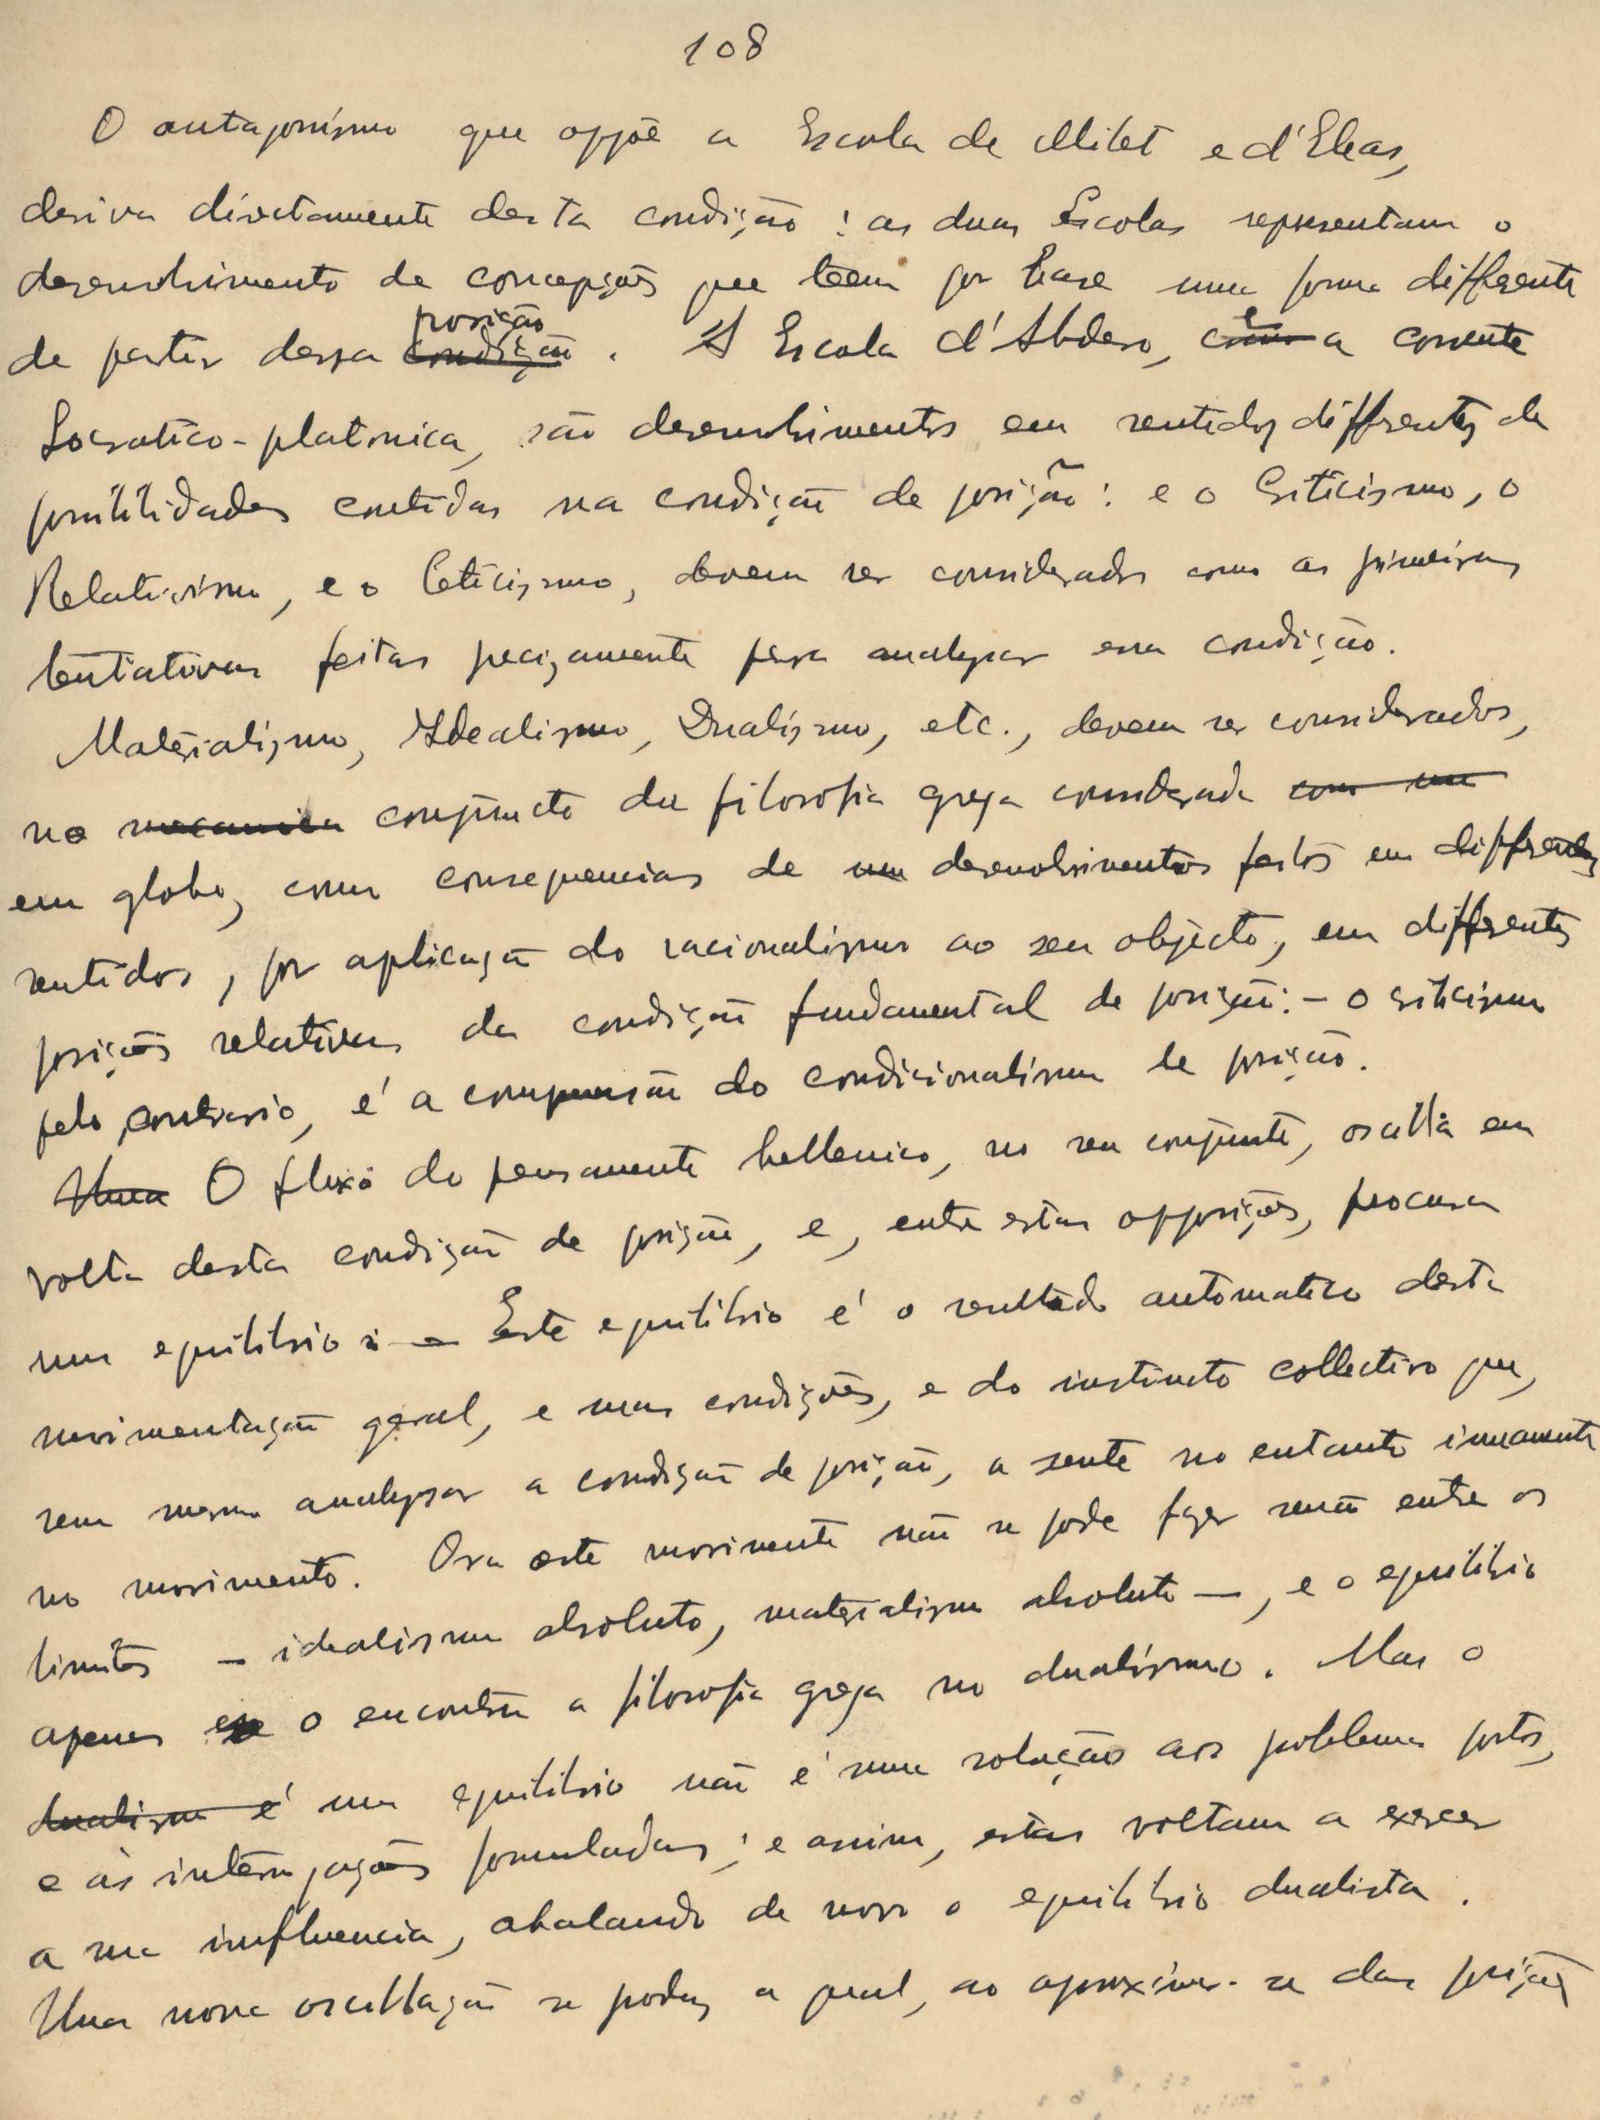 108
O antagonismo que oppõe a Escola de Milet e d'Eleas,
deriva directamente desta condição: as duas Escolas representam o
desenvolvimento de concepções que teem por base uma forma differente
de partir dessa condição posição. A Escola d'Abdero, como e a corrente
Socratico-platonica, são desenvolvimentos em sentidos differentes de
possibilidades contidas na condição de posição: e o Criticismo, o
Relativismo, e o Ceticismo, devem ser considerados como as primeiras
tentativas feitas precisamente para analysar essa condição.
Materialismo, Idealismo, Dualismo, etc., devem ser considerados,
no mecanica conjuncto da filosofia grega considerada como um
em globo, como consequencias de um desenvolvimentos feitos em differentes
sentidos, por aplicação do racionalismo ao seu objecto, em differentes
posições relativas da condição fundamental de posição: – o criticismo
pelo contrario, é a compreensão do condicionalismo de posição.
Uma O fluxo do pensamento hellenico, no seu conjunto, oscilla em
volta desta condição de posição, e, entre estas opposições, procura
um equilibrio: – Este equilibrio é o resultado automatico desta
movimentação geral, e suas condições, e do instincto collectivo que,
sem mesmo analysar a condição de posição, a sente no entanto innamente
no movimento. Ora este movimento não se pode fazer senão entre os
limites – idealismo absoluto, materialismo absoluto –, e o equilibrio
apenas o encontra a filosofia grega no dualismo. Mas o
dualismo é um equilibrio não é uma solução aos problemas postos,
e às interrogações formuladas; e assim, estas voltam a exercer
a sua imfluencia, abalando de novo o equilibrio dualista.
Uma nova oscillação se produz a qual, ao aproximar-se das posições